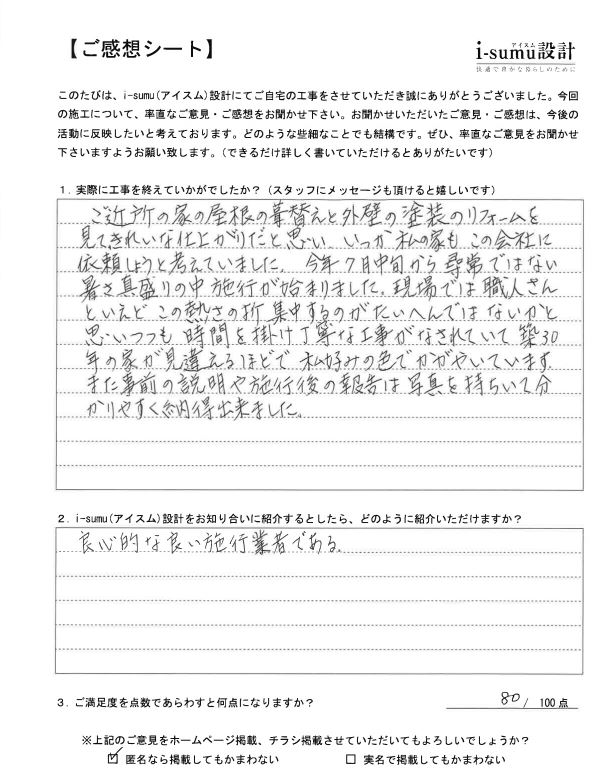 【ご感想シート】
アイスム
i-sumu設計
快適で豊かな暮らしのために
このたびは、i-sumu(アイスム)設計にてご自宅の工事をさせていただき誠にありがとうございました。今回
の施工について、率直なご意見・ご感想をお聞かせ下さい。お聞かせいただいたご意見・ご感想は、今後の
活動に反映したいと考えております。どのような些細なことでも結構です。ぜひ、率直なご意見をお聞かせ
下さいますようお願い致します。(できるだけ詳しく書いていただけるとありがたいです)
1. 実際に工事を終えていかがでしたか?(スタッフにメッセージも頂けると嬉しいです)
ご近所の家の屋根の葺替えと外壁の塗装のリフォームを
見てきれいな仕上がりだと思い、いつか私の家も この会社に
依頼しようと考えていました。今年7月中旬から 尋常ではない
暑さ真盛りの中 施行が始まりました。現場では職人さん
といえど この熱さの折 集中するのがたいへんでは ないかと
思いつつも 時間を掛け丁寧な工事がなされていて 築30
年の家が見違えるほどで 私好みの色でかがやいています。
また事前の説明や施行後の報告は 写真を持ちいて分
かりやすく納得出来ました。
2. i-sumu(アイスム)設計をお知り合いに紹介するとしたら、どのように紹介いただけますか?
良心的な良い施行業者である。
3. ご満足度を点数であらわすと何点になりますか?
80/ 100 点
※上記のご意見をホームページ掲載、チラシ掲載させていただいてもよろしいでしょうか?
☑ 匿名なら掲載してもかまわない
□ 実名で掲載してもかまわない